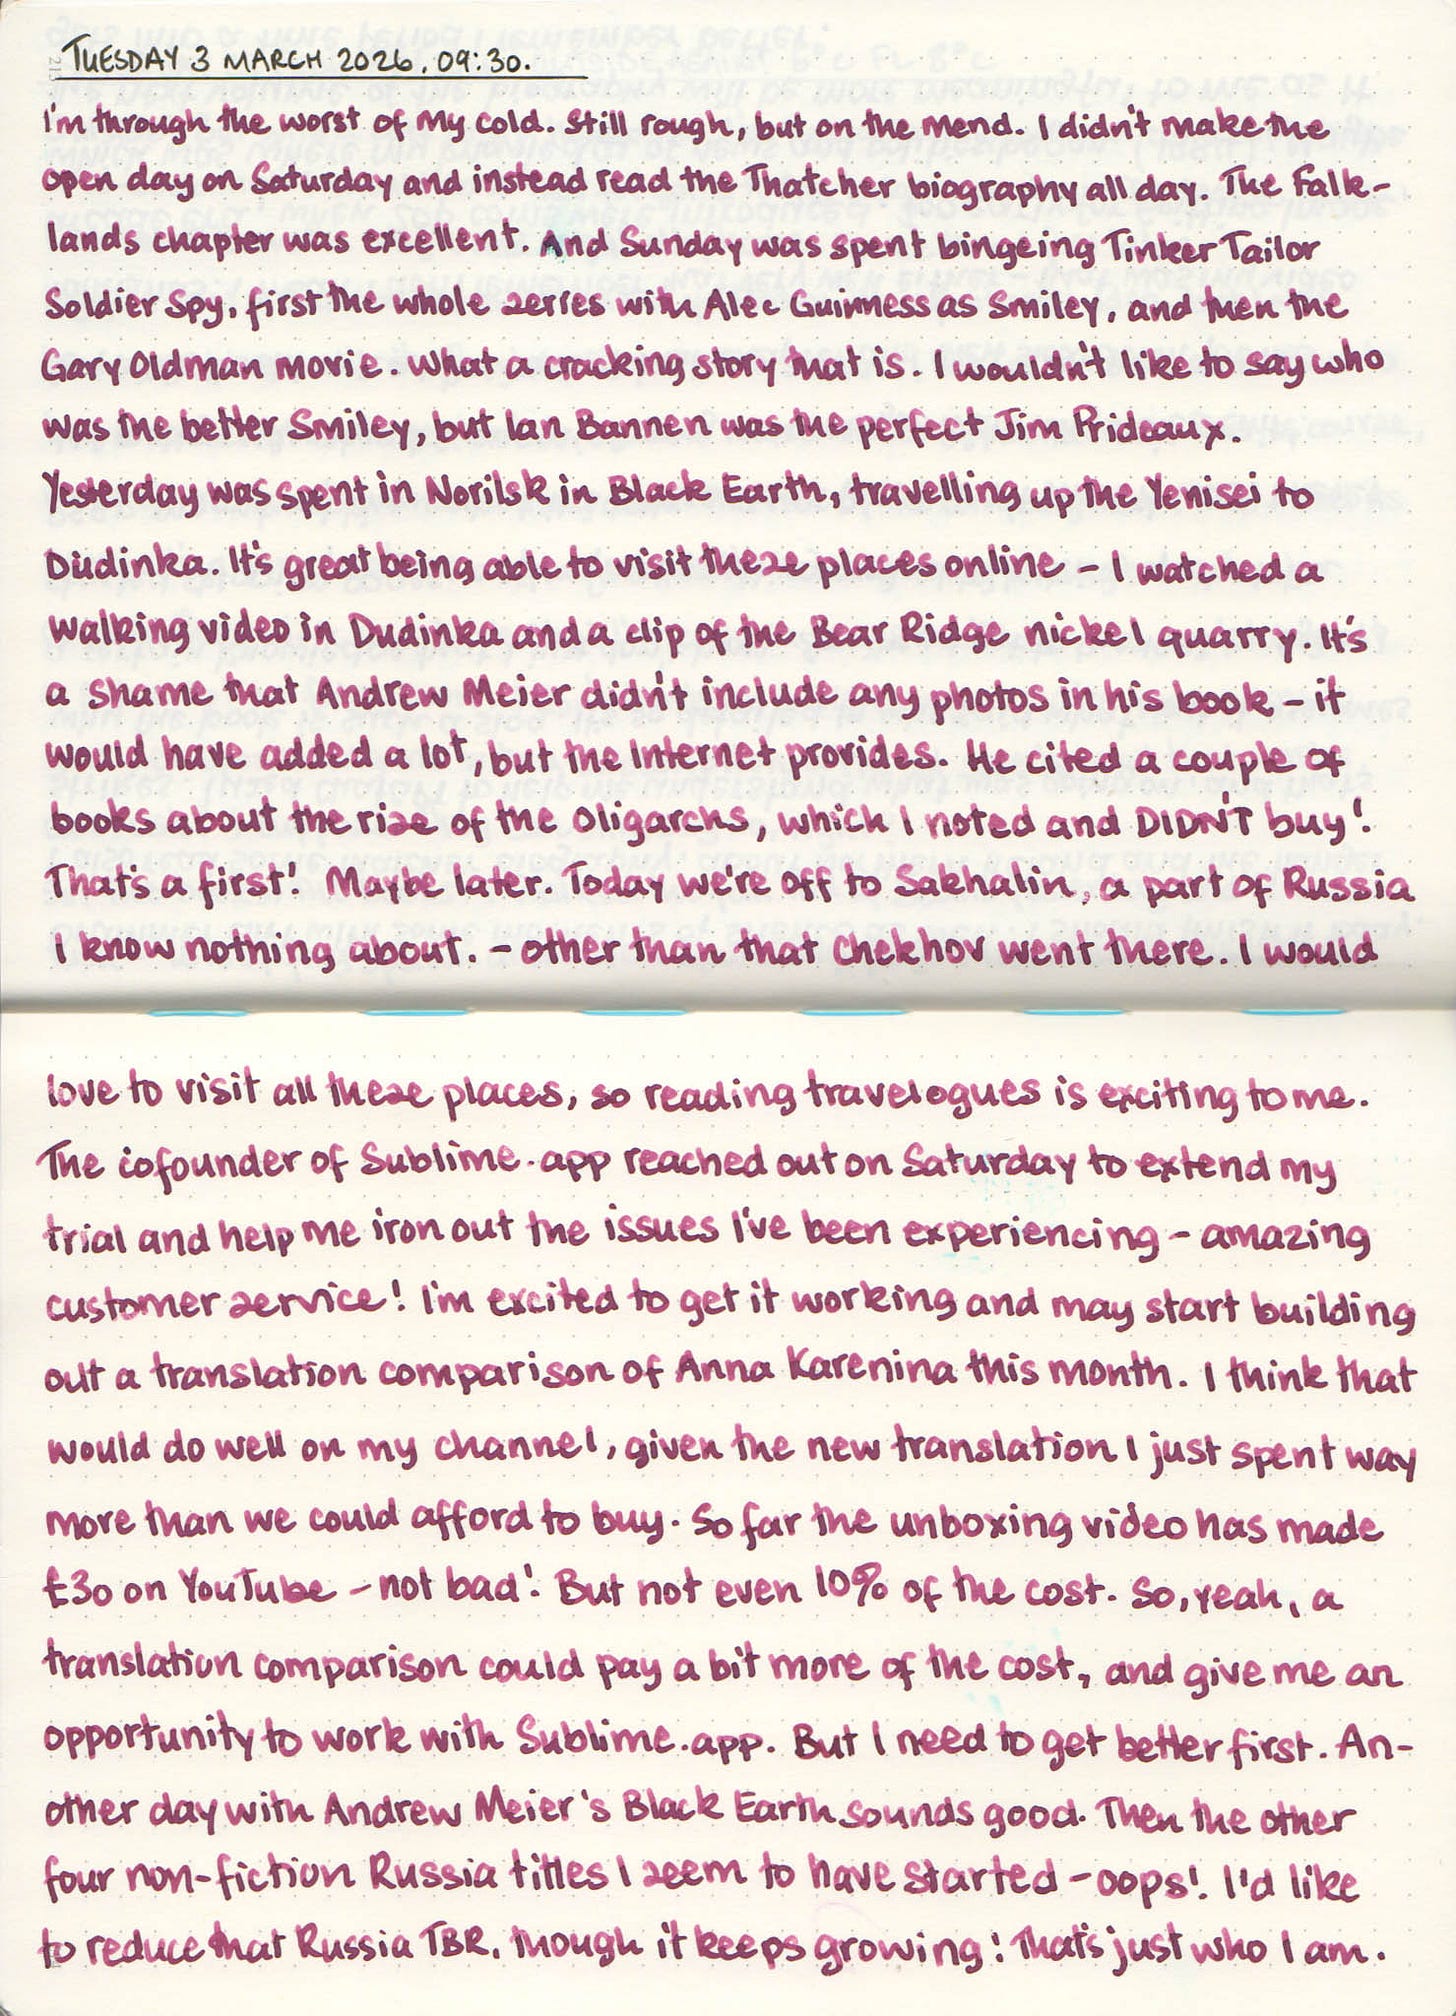 TUESDAY 3 MARCH 2026, 09:30.
I'm through the worst of my cold. Still rough, but on the mend. I didn't make the
open day on Saturday and instead read the Thatcher biography all day. The Falk-
lands chapter was excellent. And Sunday was spent bingeing Tinker Tailor
Soldier Spy, first the whole series with Alec Guinness as Smiley, and then the
Gary Oldman movie. What a cracking story that is. I wouldn't like to say who
was the better Smiley, but Ian Bannen was the perfect Jim Prideaux.
Yesterday was spent in Norilsk in Black Earth, travelling up the Yenisei to
Dudinka. It's great being able to visit these places online – I watched a
walking video in Dudinka and a clip of the Bear Ridge nickel quarry. It's
a shame that Andrew Meier didn't include any photos in his book – it
would have added a lot, but the Internet provides. He cited a couple of
books about the rise of the Oligarchs, which I noted and DIDN'T buy!
That's a first! Maybe later. Today we're off to Sakhalin, a part of Russia
I know nothing about. – other than that Chekhov went there. I would
love to visit all these places, so reading travelogues is exciting to me.
The cofounder of Sublime.app reached out on Saturday to extend my
trial and help me iron out the issues I've been experiencing – amazing
customer service! I'm excited to get it working and may start building
out a translation comparison of Anna Karenina this month. I think that
would do well on my channel, given the new translation I just spent way
more than we could afford to buy. So far the unboxing video has made
£30 on YouTube – not bad! But not even 10% of the cost. So, yeah, a
translation comparison could pay a bit more of the cost, and give me an
opportunity to work with Sublime.app. But I need to get better first. An-
other day with Andrew Meier's Black Earth sounds good. Then the other
four non-fiction Russia titles I seem to have started – oops! I'd like
to reduce that Russia TBR, though it keeps growing! That's just who I am.